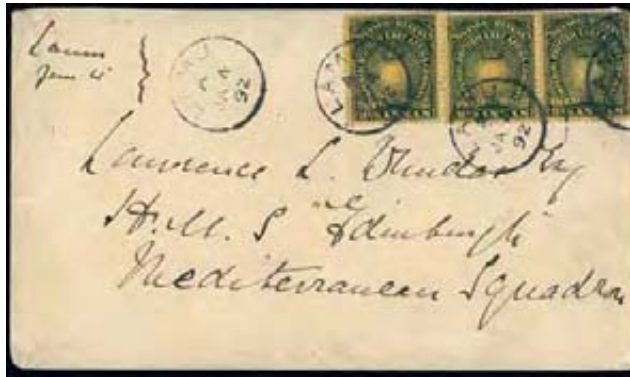 Lamu
Jan 4
LAMU
JA 4
92
LAMU
LAMU
JA
92
Lawrence L. Dundas Esq
H.M.S "Edinburgh"
Mediterranean Squadron